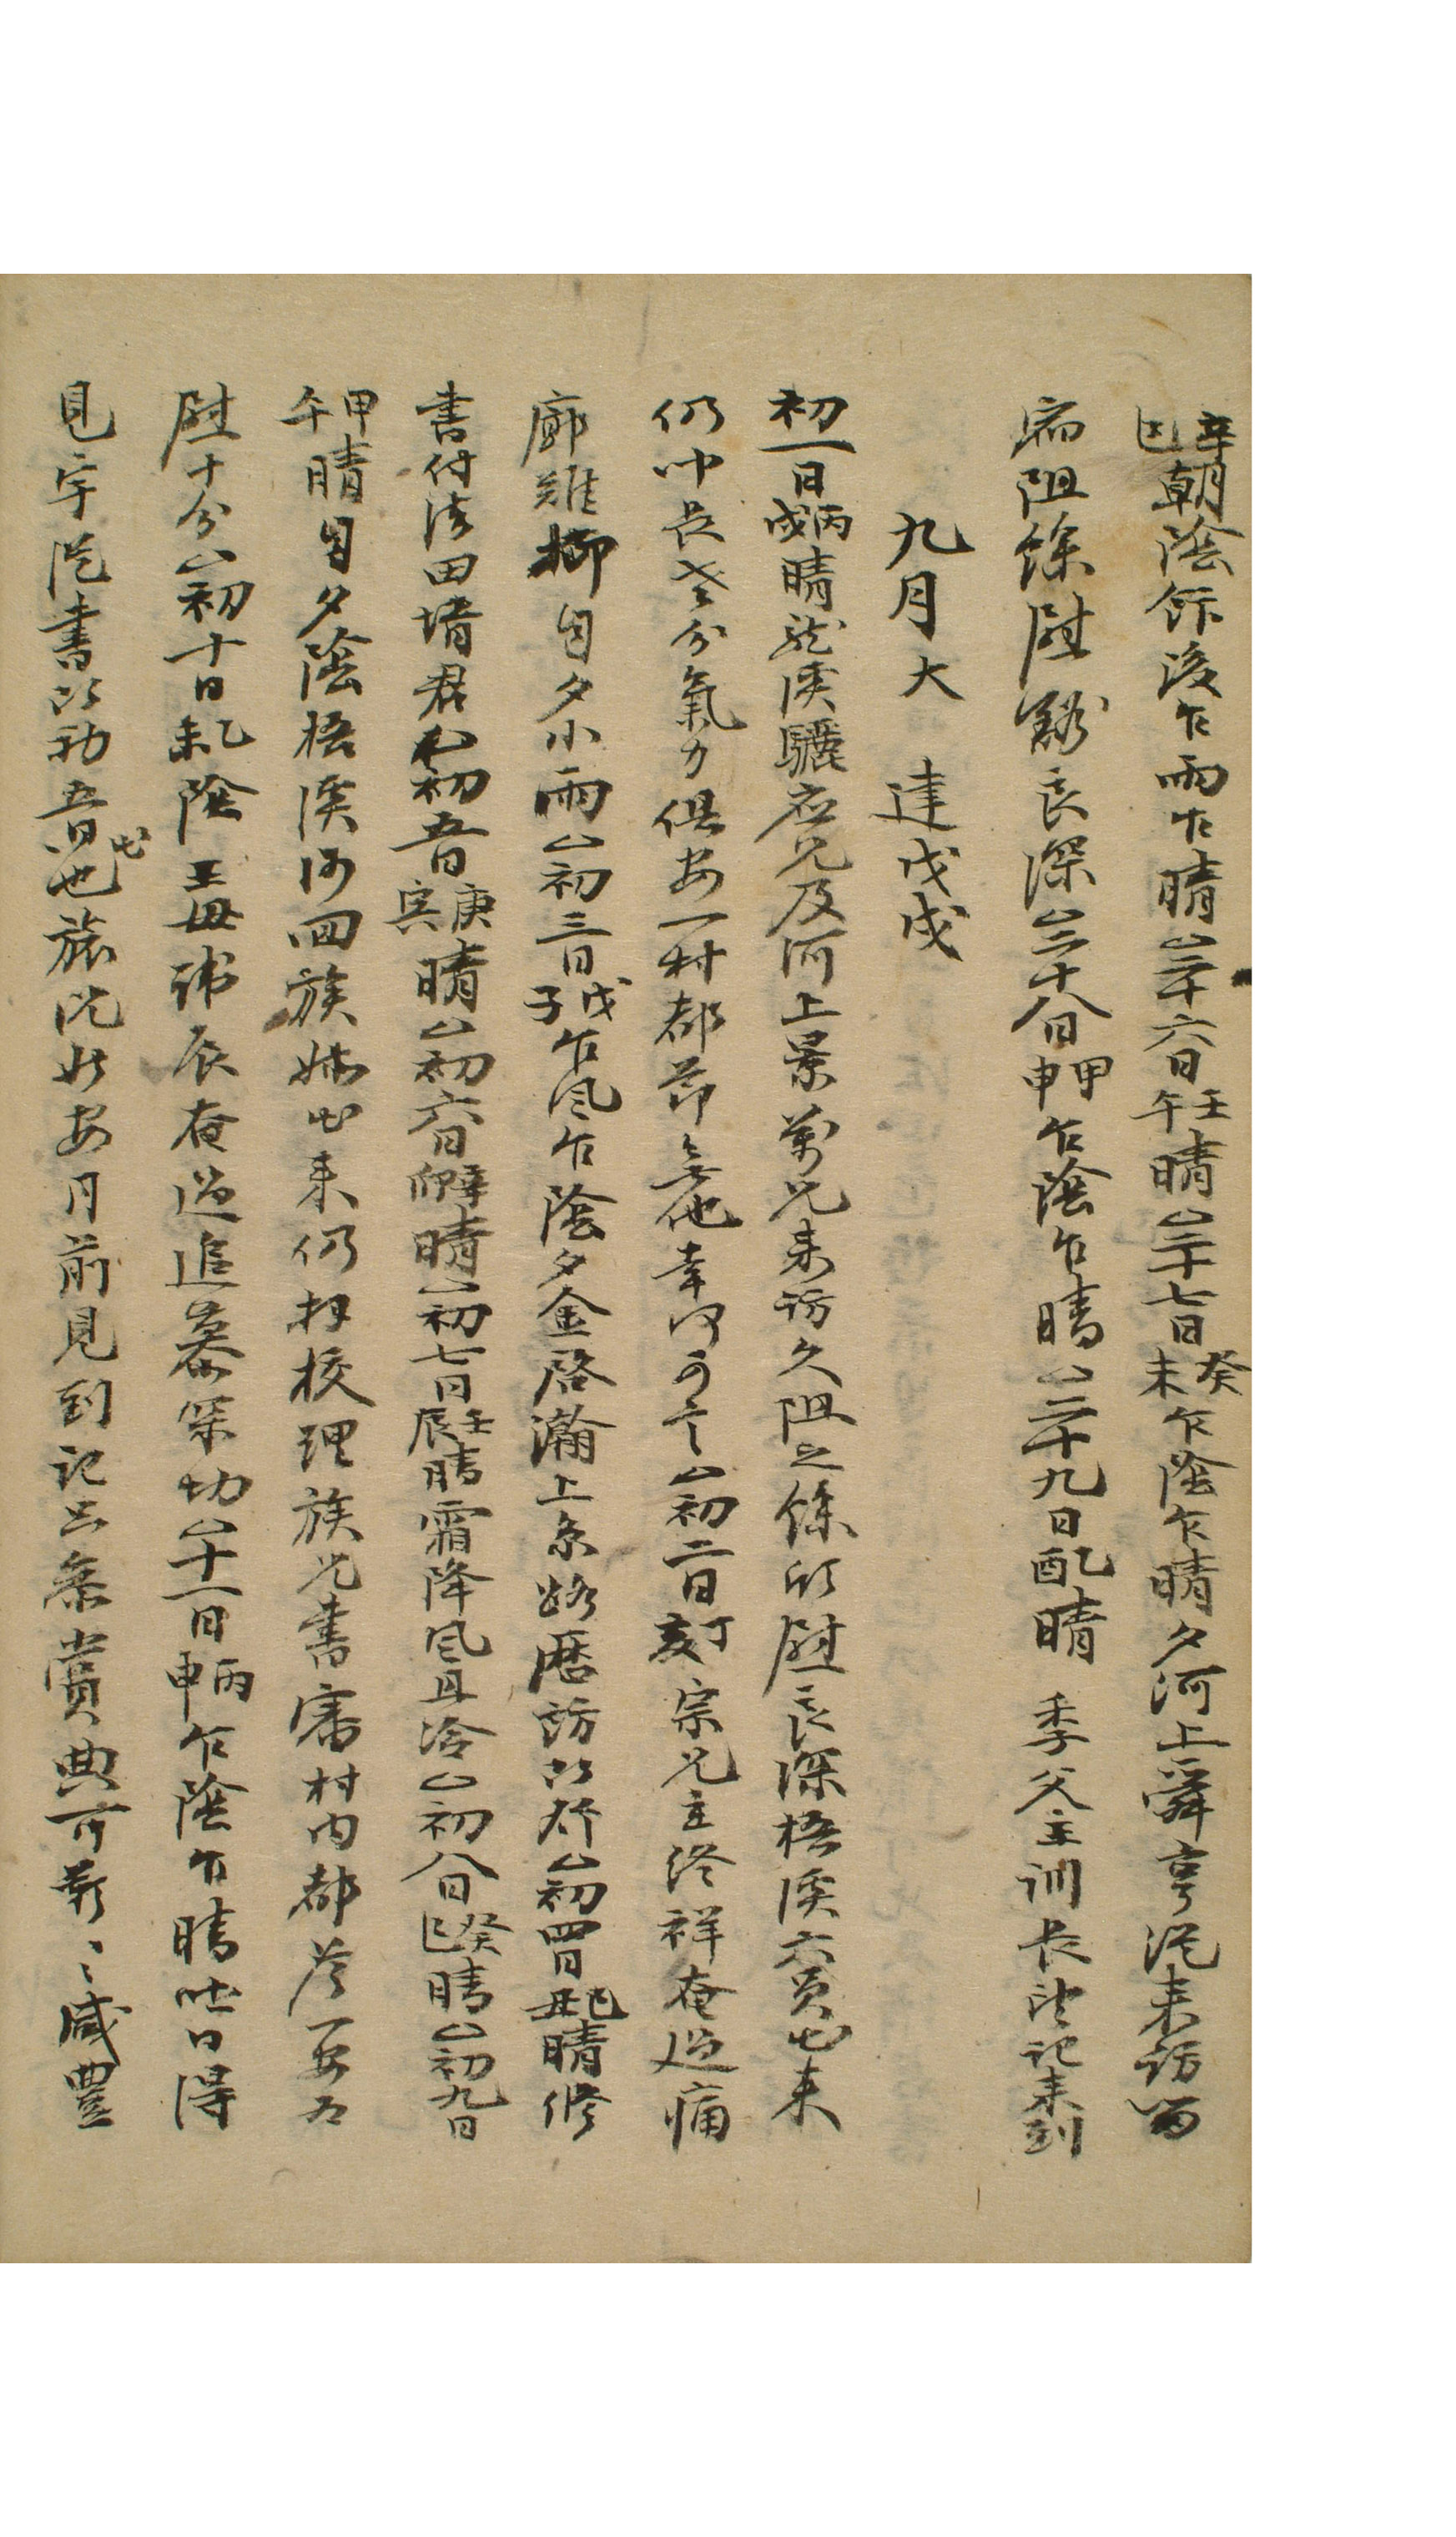 辛巳朝陰飯後乍雨乍晴 二十六日壬午晴 二十七日癸未乍陰乍晴夕河上舜亨從來訪留
宿阻餘慰豁良深 二十八日甲申乍陰乍晴 二十九日乙酉晴 季父主訓長望記來到
九月大 建戊戌
初一日丙戌晴龍溪驪應兄及河上景萬兄來訪久阻之餘欣慰良深梧溪六員也來
仍叩長老分氣力俱安一村都節無他幸何可言 初二日丁亥 宗兄主終祥奄過痛
廓難抑自夕小雨 初三日戊子乍風乍陰夕金啓瀚上京路歷訪 初四日己丑晴修
書付 田壻君 初五日庚寅晴 初六日辛卯晴 初七日壬辰晴霜降風且冷 初八日癸巳晴 初九日
甲午晴自夕陰梧溪河回族姊也來仍 校理族兄書審村內都 一安為
慰十分 初十日乙未陰 王母 辰奄過追慕深切 十一日丙申乍陰乍晴 日得
見宇從書 初五日出也旅況姑安月前見到記 賞典可 〻咸豊